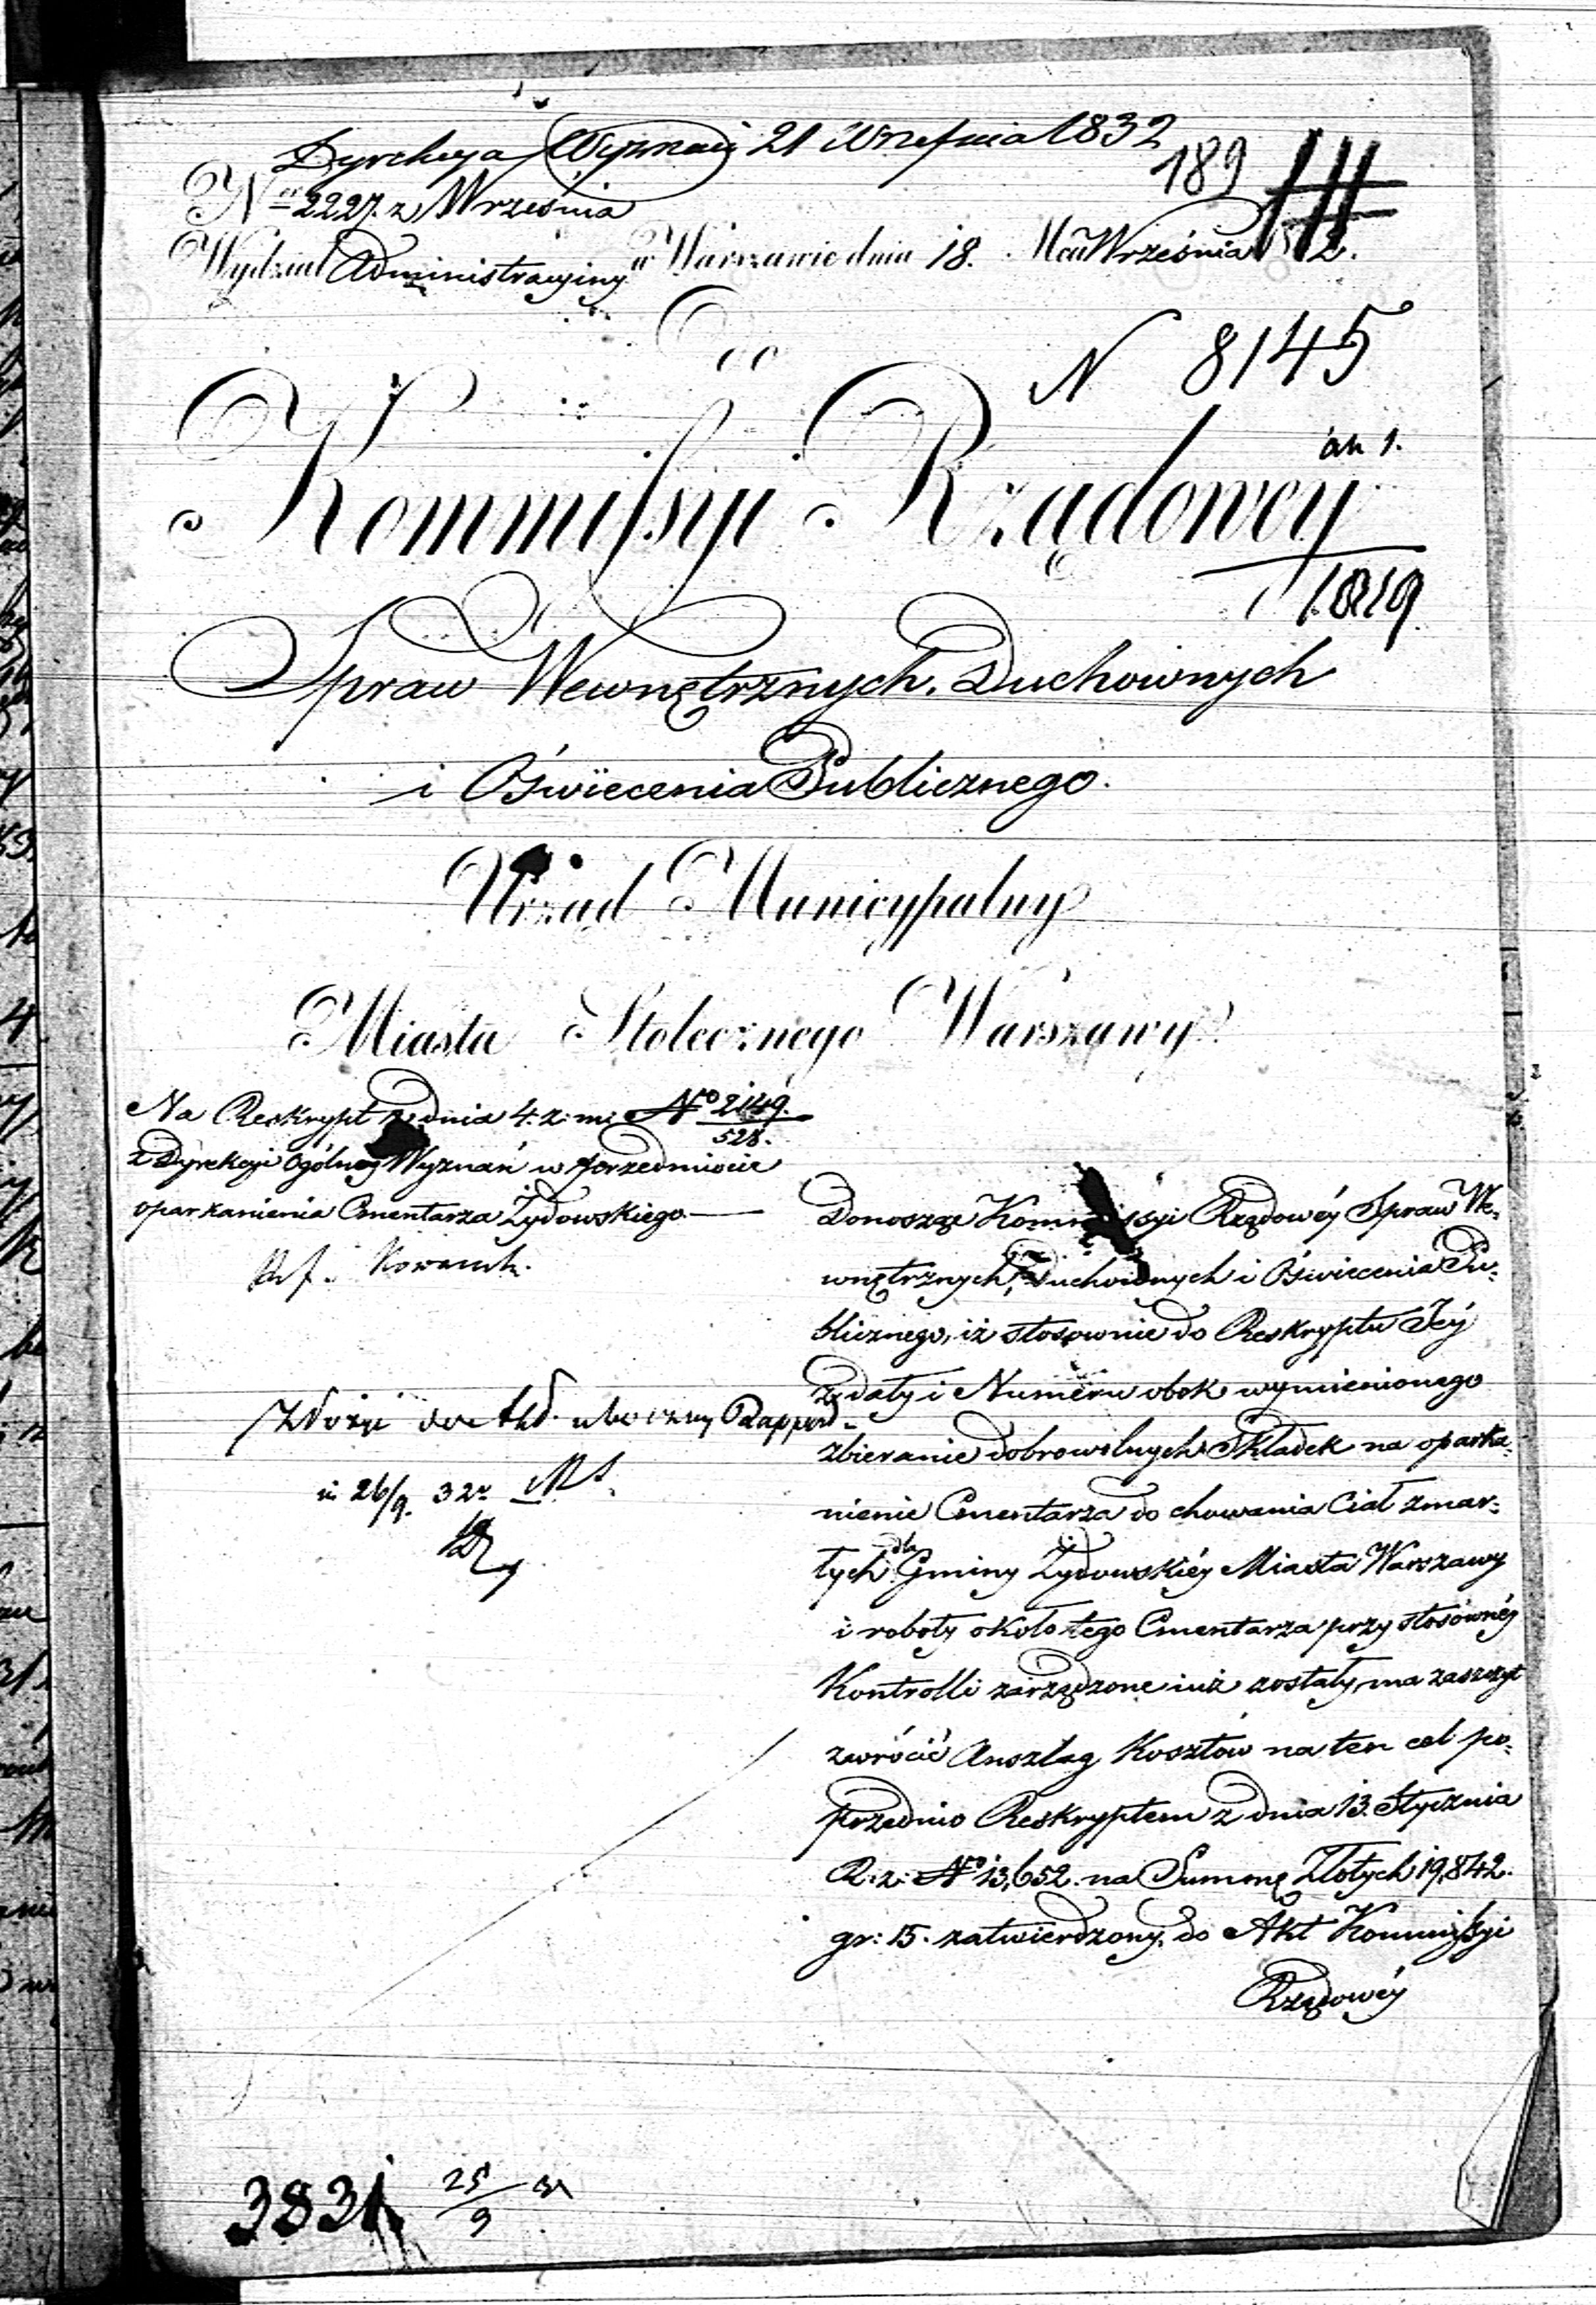 Dyrekcya Wyznań 21 Września 1832
189
Nr 2227. z Września
Wydział Administracyiny w Warszawie dnia 18. Mca Września 1832.
Do
N 8145
an 1.
Kommissyi Rządowey
1819
Spraw Wewnętrznych, Duchownych
i Oświecenia Publicznego.
Urząd Municypalny
Miasta Stołecznego Warszawy
Na Reskrypt z dnia 4. z: m: No 2149./528.
z Dyrekcyi Ogólney Wyznań w przedmiocie
oparkanienia Cmentarza Żydowskiego.
Ref.
Donosząc Kommissyi Rządowéy Spraw We-
wnętrznych, Duchownych i Oświecenia Pu-
blicznego, iż stosownie do Reskryptu Jéy
z daty i Numeru obok wymienionego
zbieranie dobrowolnych Składek na oparka-
nienie Cmentarza do chowania Ciał zmar-
łych dla Gminy Żydowskiéy Miasta Warszawy
i roboty około tego Cmentarza przy stosównéy
Kontrolli zarządzone iuż zostały, ma zaszczyt
zwrócić Anszlag Kosztów na ten cel po-
przednio Reskryptem z dnia 13. Stycznia
R: z: No 13,652. na Summę Złotych 19,842.
gr: 15. zatwierdzony, do Akt Kommissyi
Rządowéy
Złożyć do Akt. uboczny Rapport
26/9. 32
3831
25/9